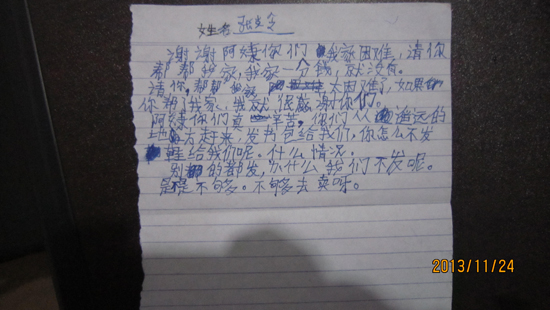 姓名 张文令
谢谢阿姨你们我家困难,请你
帮帮我家,我家一分钱,就没有。
请你,帮帮我家太困难了,如果
你帮了我家,我就很感谢你们。
阿姨你们真辛苦。你们从遥远的
地方走来,发书包给我们,你怎么不发
鞋给我们呢。什么情况。
别的都发,为什么我们不发呢。
是是不够。不够去卖呀。
2013/11/24